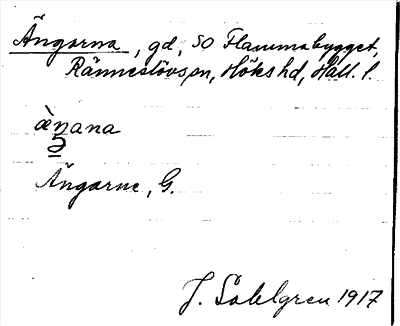 Ängarna, gd, SO Flammabygget,
Ränneslövs sn, Höks hd, Hall. l.
æ̀ŋana
5
Ängarne, G.
J. Sahlgren 1917